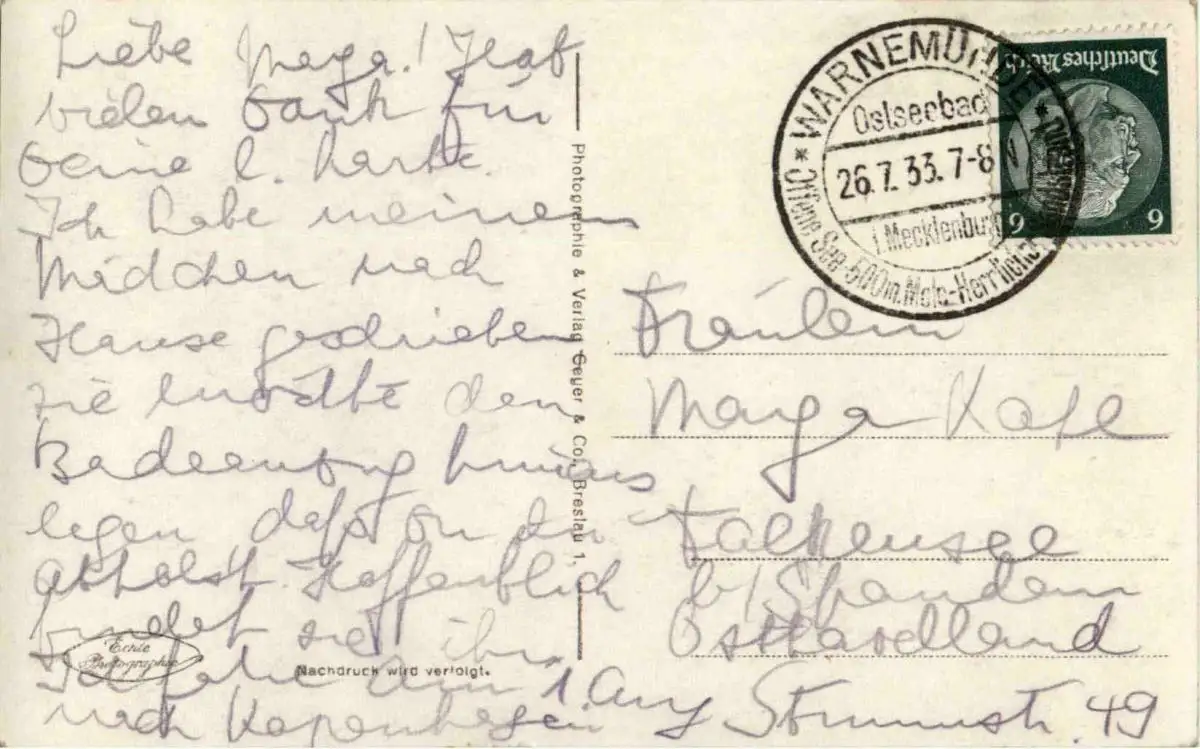 Liebe Marga! Hab
vielen Dank für
Deine l. Karte.
Ich habe meinem
Mädchen nach
Hause geschrieben
sie möchte den
Badeanzug hinaus
legen daß du ihn
abholst. Hoffentlich
findet sie ihn.
Ich fahre am 1. Aug
nach Kopenhagen
Echte
Photographie
Nachdruck wird verfolgt.
Photographie & Verlag Geyer & Co., Breslau 1,
* WARNEMÜNDE *
Ostseebad
26.7.33.7-8 N
i. Mecklenburg
Offene See-500m. Mole-Herrlicher
Deutsches Reich
6 6
Fräulein
Marga
Falkensee
b/Spandau
Osthavelland
49